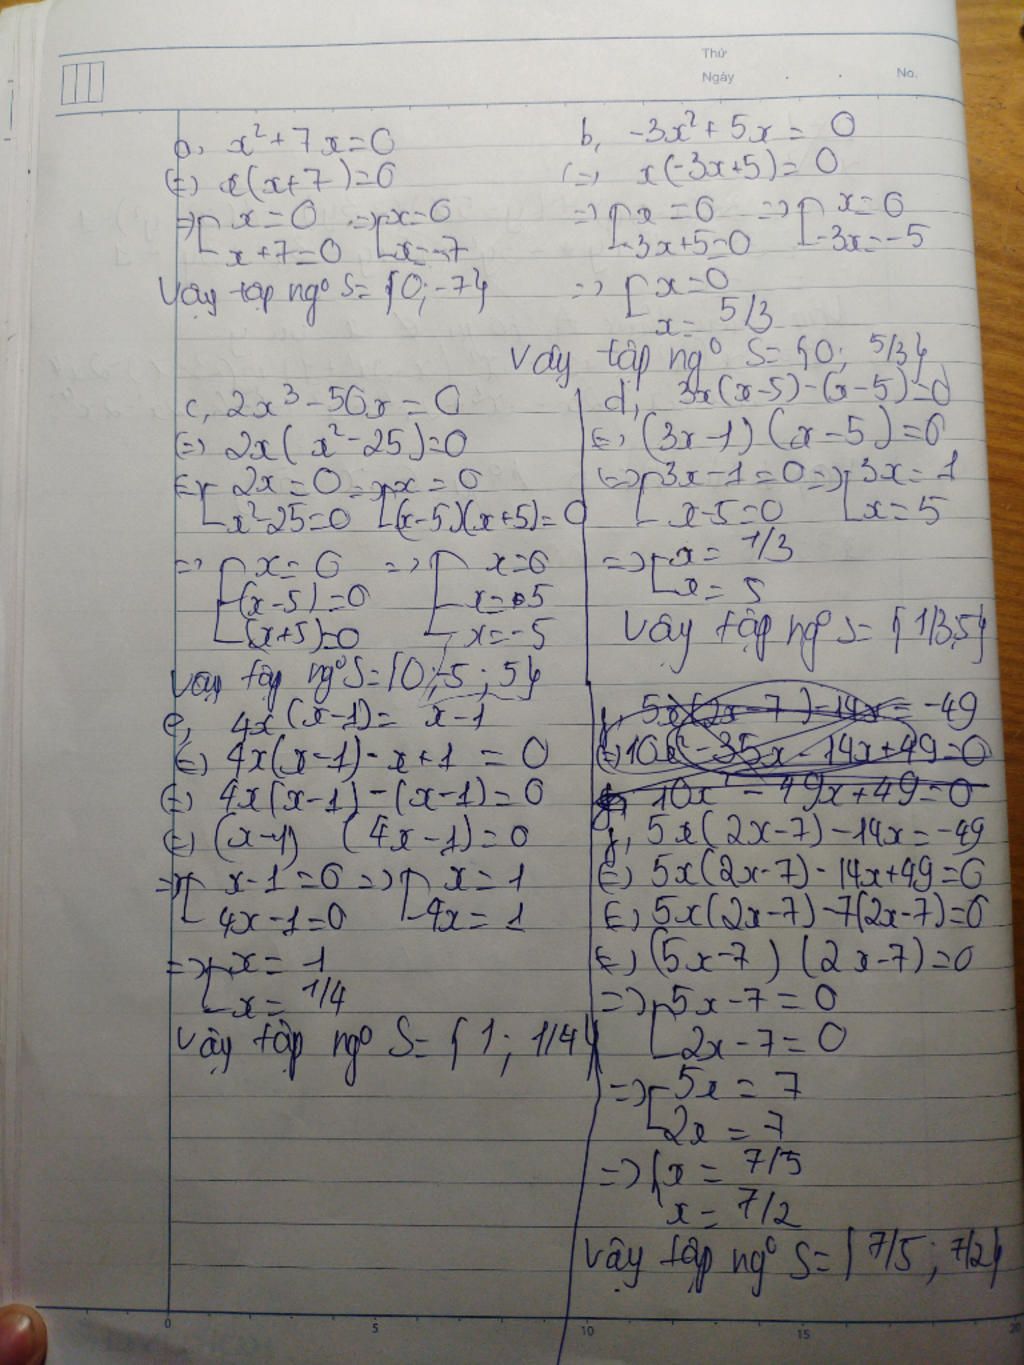 Thứ
Ngày . . No.
a, x²+7x=0
(=) x(x+7)=0
=>[x=0 =>[x=0
x+7=0 x=-7
Vậy tập ngº S={0;-7}
b, -3x²+5x=0
(=) x(-3x+5)=0
=>[x=0 =>[x=0
-3x+5=0 -3x=-5
=>[x=0
x=5/3
Vậy tập ngº S={0; 5/3}
c, 2x³-50x=0
(=) 2x(x²-25)=0
(=)[2x=0 =>[x=0
x²-25=0 [(x-5)(x+5)=0
=>[x=0 =>[x=0
(x-5)=0 x=5
(x+5)=0 x=-5
Vậy tập ngº S={0;-5;5}
d, 3x(x-5)-(x-5)=0
(=) (3x-1)(x-5)=0
(=)[3x-1=0 =>[3x=1
x-5=0 x=5
=>[x=1/3
x=5
Vậy tập ngº S={1/3;5}
e, 4x(x-1)=x-1
(=) 4x(x-1)-x+1=0
(=) 4x(x-1)-(x-1)=0
(=) (x-1)(4x-1)=0
=>[x-1=0 =>[x=1
4x-1=0 4x=1
=>[x=1
x=1/4
Vậy tập ngº S={1; 1/4}
f, 5x(2x-7)-14x=-49
(=) 10x²-35x-14x+49=0
10x²-49x+49=0
f, 5x(2x-7)-14x=-49
(=) 5x(2x-7)-14x+49=0
(=) 5x(2x-7)-7(2x-7)=0
(=) (5x-7)(2x-7)=0
=>[5x-7=0
2x-7=0
=>[5x=7
2x=7
=>[x=7/5
x=7/2
Vậy tập ngº S={7/5; 7/2}
0 5 10 15 20